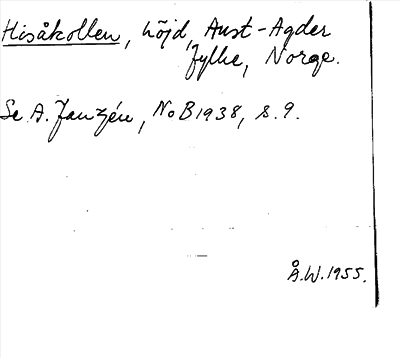 Hisåkollen, höjd, Aust-Agder
fylke, Norge.
Se A. Janzén, NoB 1938, s. 9.
Å.W. 1955.